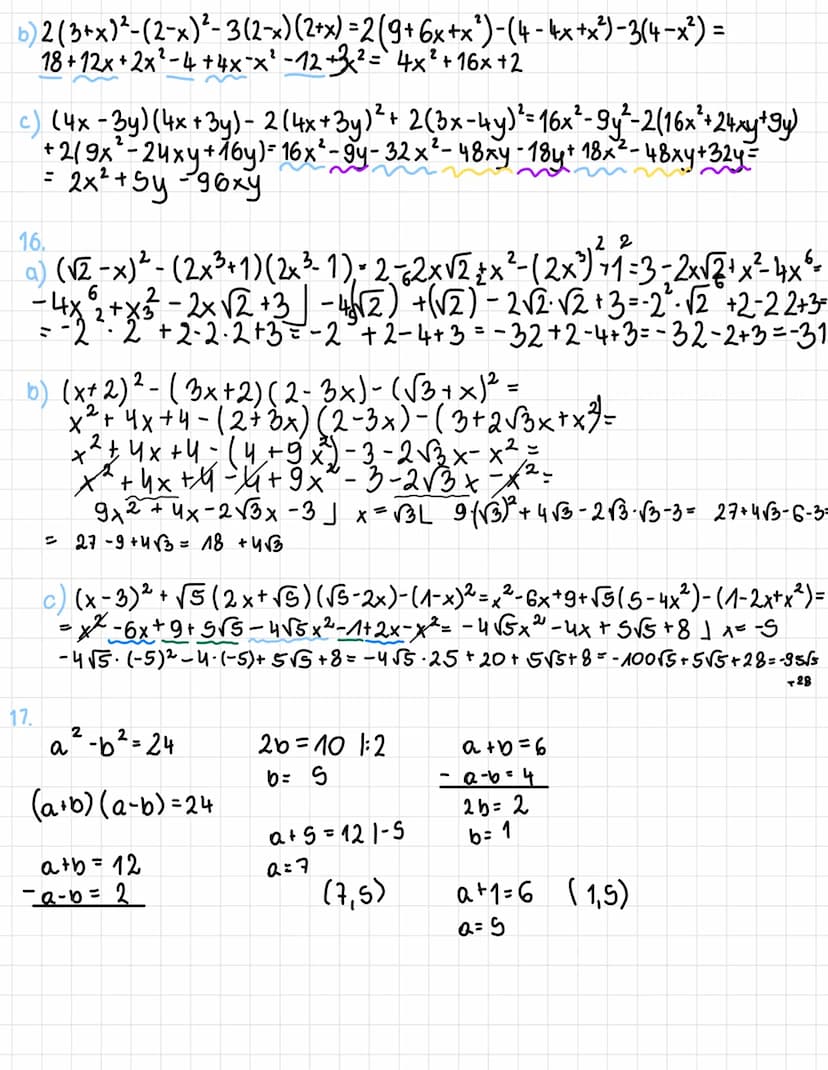 b) 2(3+x)²-(2-x)²-3(2-x)(2+x)=2(9+6x+x²)-(4-4x+x²)-3(4-x²)=
18+12x+2x²-4+4x-x²-12+3x²= 4x²+16x+2
c) (4x-3y)(4x+3y)-2(4x+3y)²+2(3x-4y)²=16x²-9y²-2(16x²+24xy+9y)
+2(9x²-24xy+16y)=16x²-9y-32x²-48xy-18y+18x²-48xy+32y=
= 2x²+5y-96xy
16.
a) (√2-x)²-(2x³+1)(2x³-1)=2-2x√2+x²-(2x³)²+1²=3-2x√2+x²-4x⁶=
-4x⁶+x²-2x√2+3⌋ -4(√2)⁶+(√2)²-2√2·√2+3=-2²·√2⁶+2-2·2+3=
= -2²·2³+2-2·2+3=-2⁵+2-4+3=-32+2-4+3=-32-2+3=-31
b) (x+2)²-(3x+2)(2-3x)-(√3+x)²=
x²+4x+4-(2+3x)(2-3x)-(3+2√3x+x²)=
x²+4x+4-(4+9x²)-3-2√3x-x²=
x²+4x+4-4+9x²-3-2√3x-x²=
9x²+4x-2√3x-3⌋ x=√3L 9(√3)²+4√3-2√3·√3-3= 27+4√3-6-3=
= 27-9+4√3= 18+4√3
c) (x-3)²+√5(2x+√5)(√5-2x)-(1-x)²=x²-6x+9+√5(5-4x²)-(1-2x+x²)=
= x²-6x+9+5√5-4√5x²-1+2x-x²= -4√5x²-4x+5√5+8⌋ x=-5
-4√5·(-5)²-4·(-5)+5√5+8=-4√5·25+20+5√5+8=-100√5+5√5+28=-95√5
+28
17.
a²-b²=24
(a+b)(a-b)=24
a+b=12
-a-b=2
2b=10 |:2
b=5
a+5=12 |-5
a=7
(7,5)
a+b=6
- a-b=4
2b=2
b=1
a+1=6 (1,5)
a=5